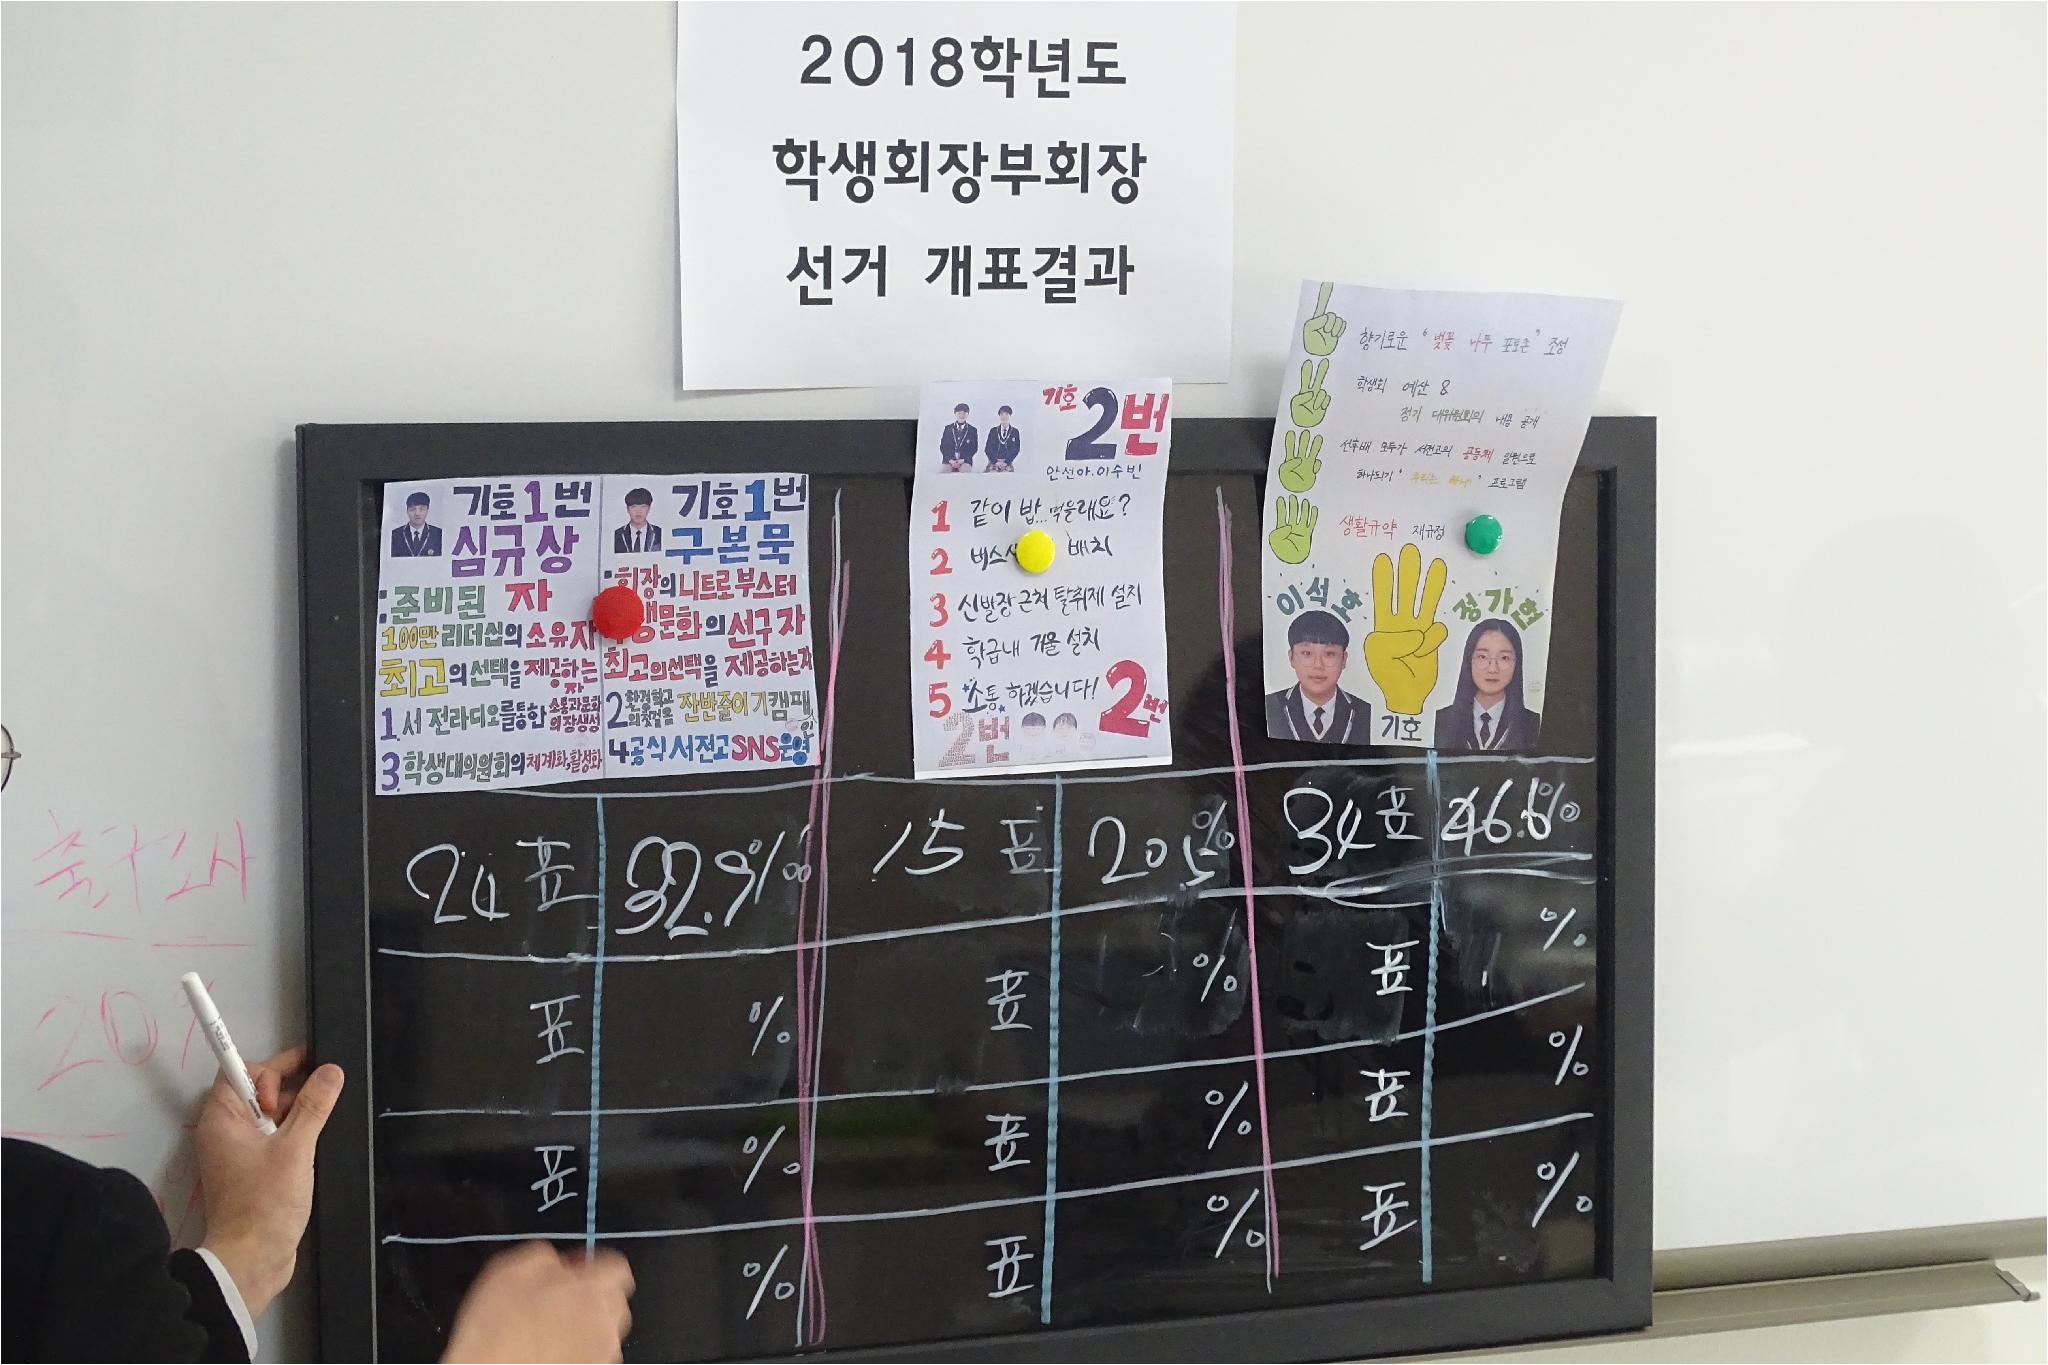 2018학년도
학생회장부회장
선거 개표결과
기호1번
심규상
:준비된 자
100만 리더십의 소유자
최고의 선택을 제공하는
자
1. 서전라디오를통한 소통과문화의장생성
3. 학생대의원회의 체계화,활성화
기호1번
구본묵
:회장의 니트로 부스터
문화의 선구자
최고의선택을 제공하는자
2 환경학교의첫걸음 잔반줄이기캠페인
4공식 서전고 SNS운영
기호 2번
안선아.이수빈
1 같이 밥...먹을래요?
2 버스 배치
3 신발장 근처 탈취제 설치
4 학급내 거울 설치
5 소통 하겠습니다!
2번
2번
향기로운 "벚꽃 나무 포토존" 조성
학생회 예산 &
정기 대위원회의 내용 공개
선후배 모두가 서전고의 공동체 일원으로
하나되기 "우리는 하나" 프로그램
생활규약 재규정
이석호
정가현
기호
24 표 32.9% 15 표 20.5% 34 표 46.6%
표 % 표 % 표 %
표 % 표 % 표 %
% 표 % 표 %
출구조사
20%